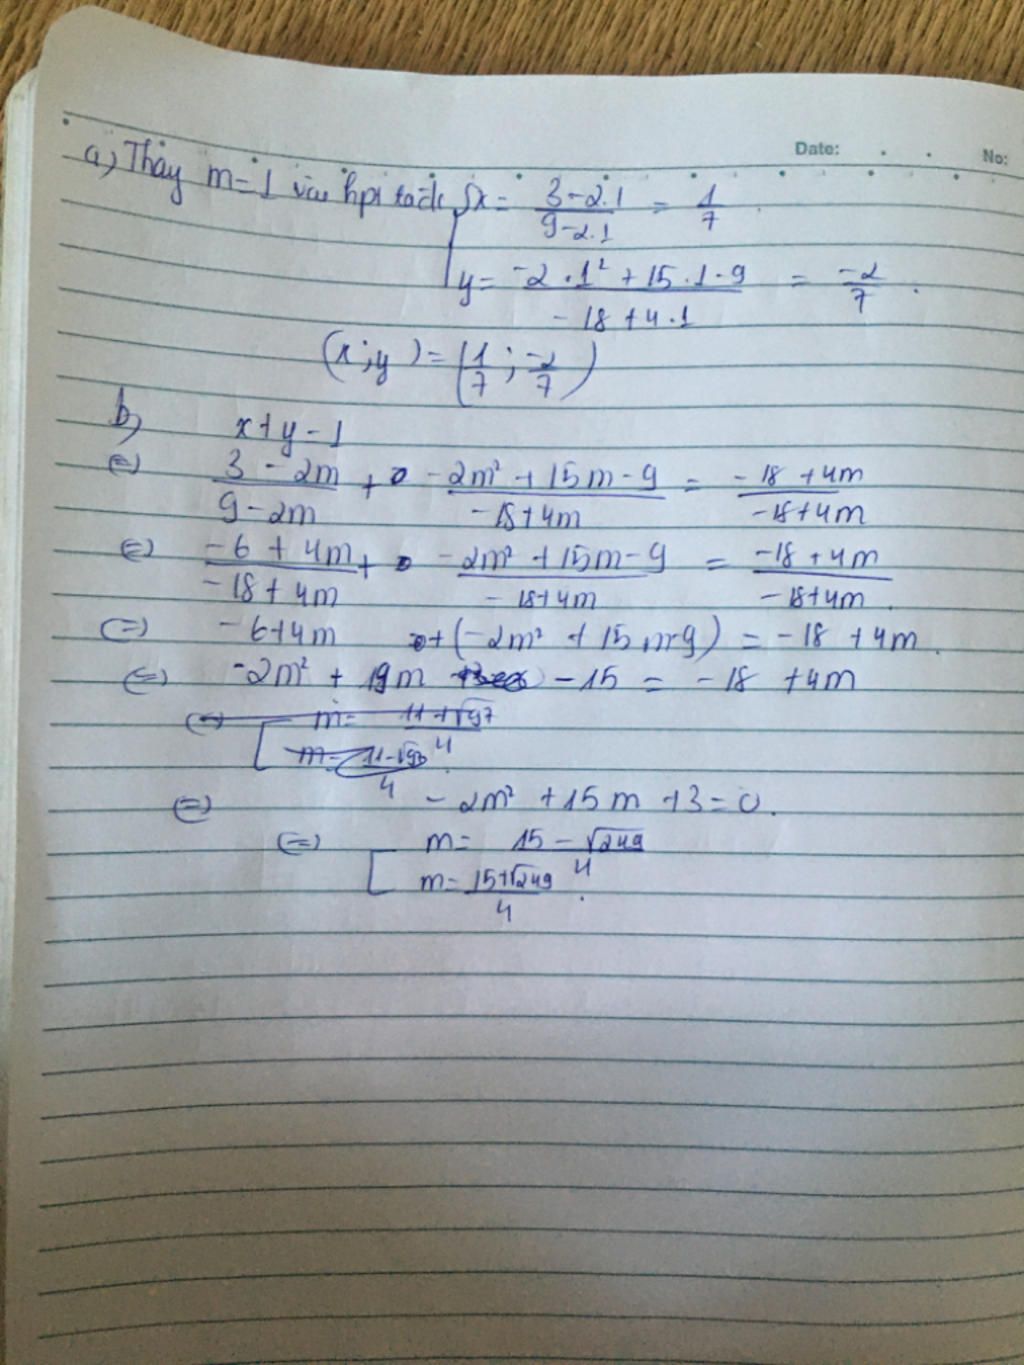 Date: No:
a) Thay m=1 vào hpt ta có: { x = (3-2.1)/(9-2.1) = 1/7
y = (-2.1² + 15.1-9)/(-18+4.1) = -2/7.
(x;y) = (1/7; -2/7)
b) x+y=1
(=) (3-2m)/(9-2m) + (-2m²+15m-9)/(-18+4m) = (-18+4m)/(-18+4m)
(=) (-6+4m)/(-18+4m) + (-2m²+15m-9)/(-18+4m) = (-18+4m)/(-18+4m).
(=) -6+4m + (-2m²+15m-9) = -18+4m.
(=) -2m² + 19m -15 = -18 +4m
(=) [ m = (11+√97)/4
m = (11-√97)/4
(=) -2m² +15m +3=0.
(=) [ m = (15-√249)/4
m = (15+√249)/4.